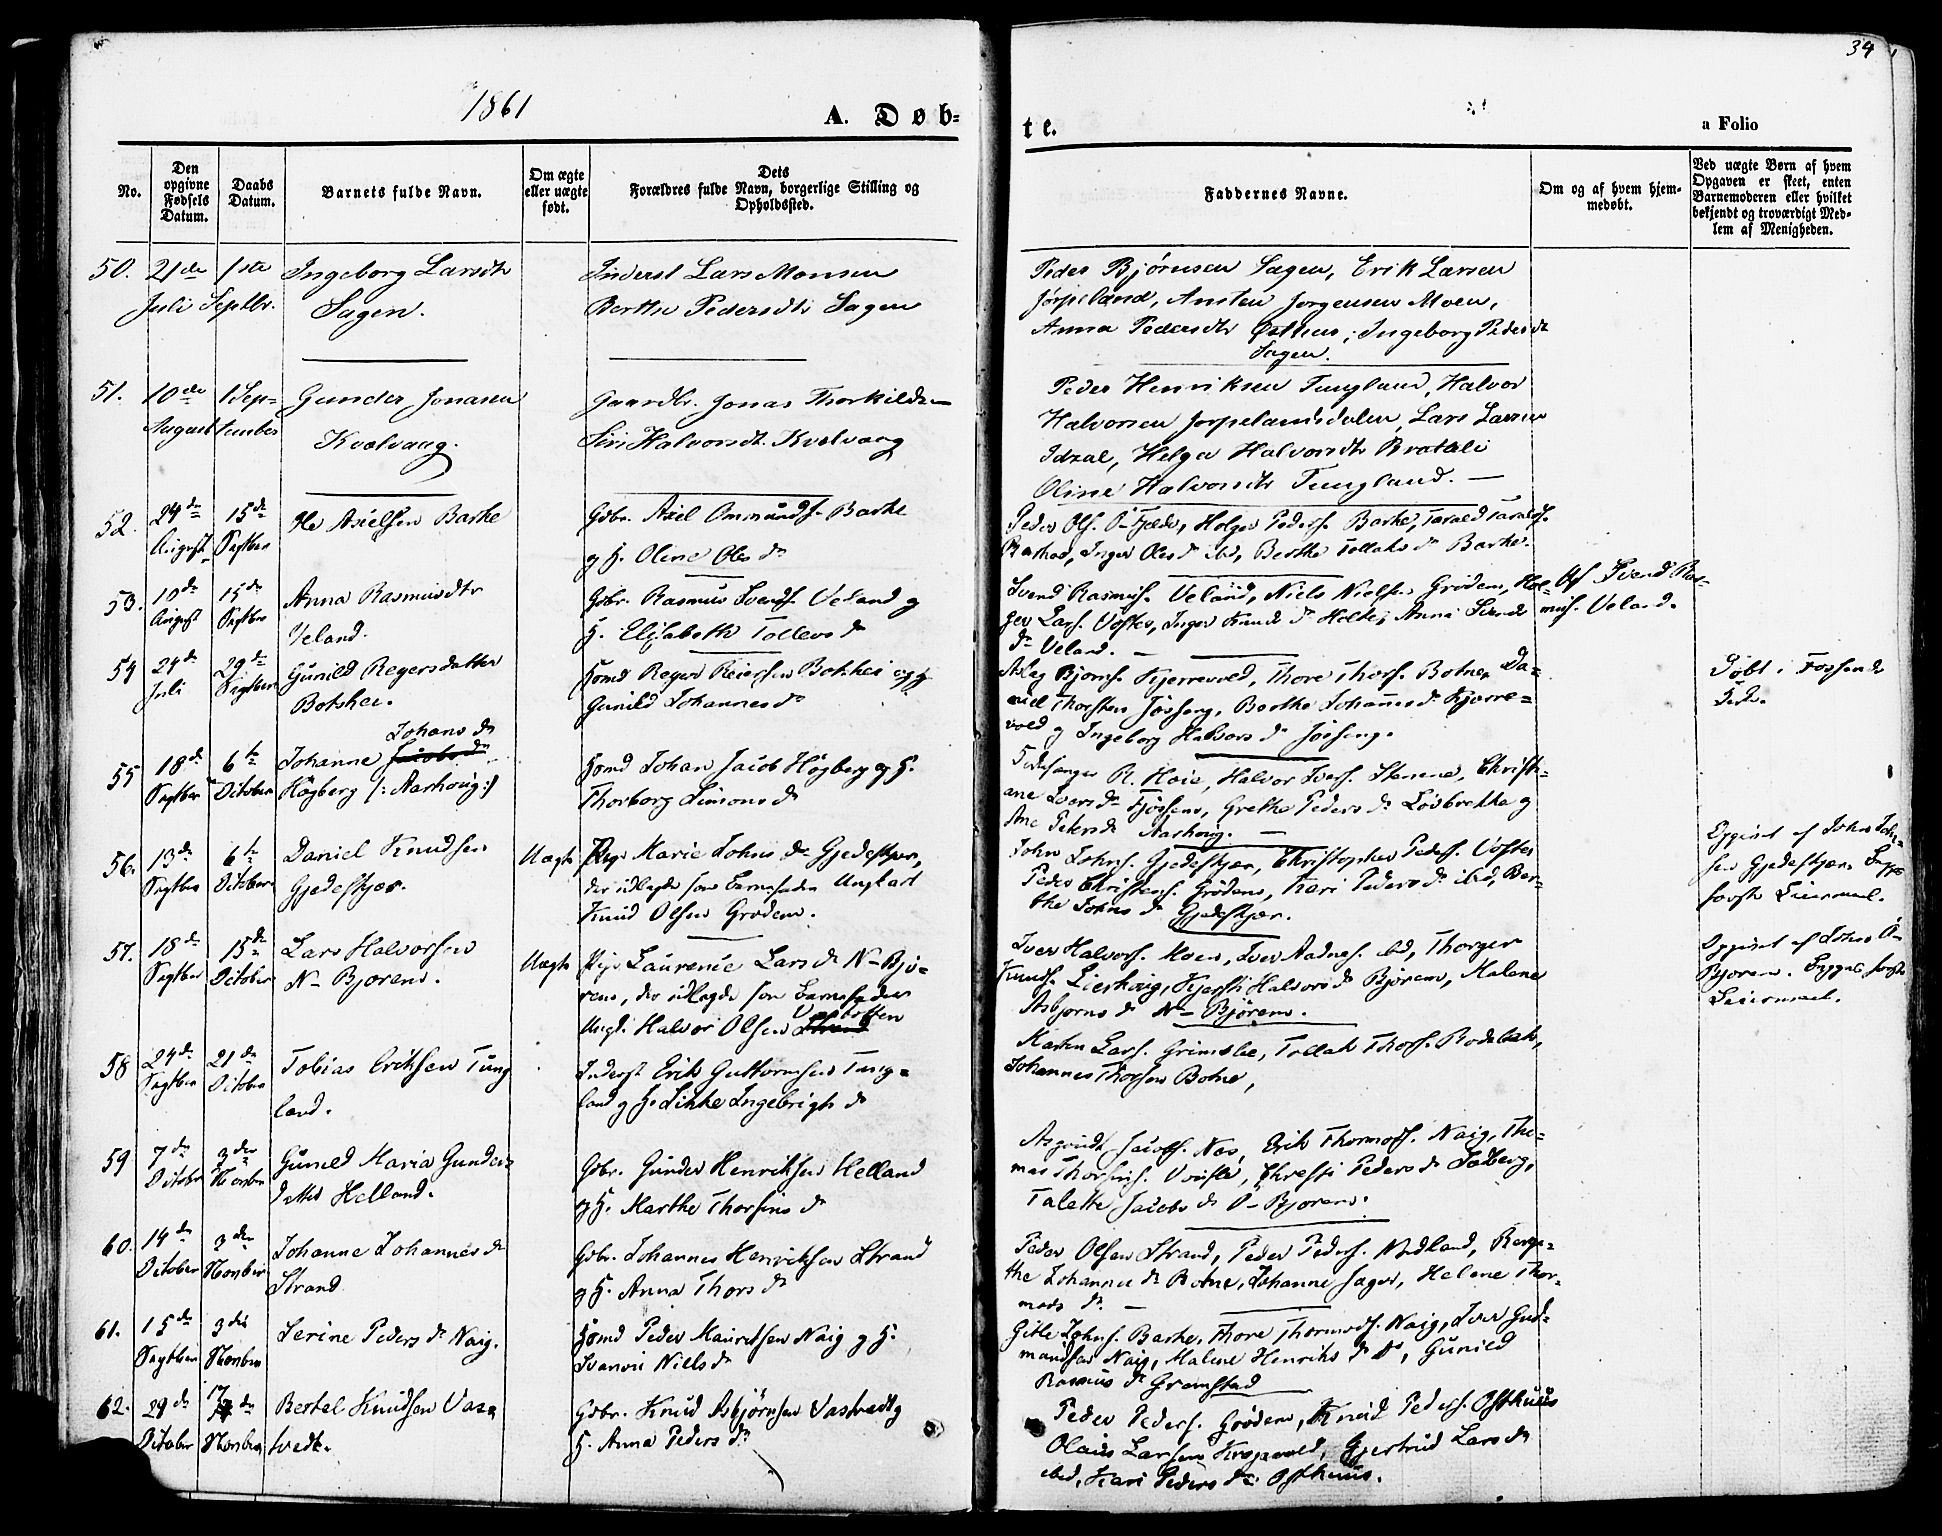 34
1861
A. Døb=
te.
a Folio
No.
Den opgivne Fødsels Datum.
Daabs Datum.
Barnets fulde Navn.
Om ægte eller uægte født.
Dets Forældres fulde Navn, borgerlige Stilling og Opholdssted.
Faddernes Navne.
Om og af hvem hjem-medøbt.
Ved uægte Børn af hvem Opgaven er skeet, enten Barnemoderen eller hvilket bekjendt og troværdigt Med-lem af Menigheden.
50. 21de Juli 1ste Septbr.
Ingeborg Larsdtr
Sagen.
Inderst Lars Monsen
Berthe Pedersdtr Sagen
Peder Bjørnsen Sagen, Erik Larsen
Jørpeland, Ansten Jørgensen Moen,
Anna Pedersdtr Østhus, Ingeborg Pedersdt
Sagen.
51. 10de August 1 September
Gunder Jonasen
Kvalvaag.
Gaardbr. Jonas Thorkilds
Siri Halvorsdt. Kvalvaag
Peder Henriksen Tungland, Halvor
Halvorsen Jørpelandsdalen, Lars Larsen
Idzal, Helga Halvorsdtr Bratali
Oline Halvorsdtr Tungland. —
52. 24de August 15de Septber
Ole Axelsen Barke
Gdbr. Axel Ommunds. Barke
og H. Oline Olesd
Peder Ols. Ø-Fjelde, Holger Peders. Barke, Tarald Taralds.
Barkad, Inger Olesd ibd, Berthe Tollaksd Barke.
53. 10de August 15de Septber
Anna Rasmusdtr
Veland.
Gdbr. Rasmus Svends. Veland og
H. Elisabeth Tollevsd
Svend Rasmus. Veland, Niels Niels. Grødem, Hol=
ger Lars. Voster, Inger Knudsd Holte, Anna Svends
d Veland. —
Af Svend Ras=
mus. Veland.
54 24de Juli 29de Septber
Gunild Regersdatter
Botshei.
Hsmd Reger Reiersen Botshei og H.
Gunild Johannesd
Aslag Bjørns. Kjerrevold, Thore Thors. Botne, Da=
niel Thorsten Jøssang, Berthe Johannesd Kjerre=
vold og Ingeborg Halvorsd Jøssang.
Døbt i Fossands
Kirke.
55 18de Septber 6te October
Johanne Jacobsd Johansd
Høgberg (: Aarhoug :)
Hsmd Johan Jacob Høgberg og H.
Thorborg Simonsd
Kirkesanger R. Høie, Halvor Ivers. Stenene, Christi=
ane Iversd Fjøssene, Grethe Pedersd Løvbrekke og
Ane Petersd Aarhoug. —
56. 13de Septber 6te October
Daniel Knudsen
Gjedeskjær.
Uægte
Pige Marie Johnsd Gjedeskjær,
der udlagde som Barnefader Ungkarl
Knud Olsen Grødem.
John Johns. Gjedeskjær, Christopher Peders. Voster
Peder Christens. Grødem, Kari Pedersd ibd, Ber=
the Johnsd Gjedeskjær.
Opgivet af John John=
sen Gjedeskjær. Begges
første Leiermaal.
57. 18de Septber 15de October
Lars Halvorsen
N-Bjøreim.
Uægte
Pige Laurense Larsd N-Bjø=
reim, der udlagde som Barnefader
Ungk. Halvor Olsen Strand
Iver Halvors. Moen, Iver Aadnes. ibd, Thorger
Knuds. Lierhoug, Kjersti Halvorsd Bjøreim, Malene
Asbjørnsd N-Bjøreim.
Opgivet af John Ø-
Bjøreim. Begges første
Leiermaal.
58 24de Septber 21de October
Tobias Eriksen Tung
land.
Inderst Erik Guttormsen Tung=
land og H. Sikke Ingebrigtsd
Karsten Lars. Grimslie, Tollak Thors. Rodebak,
Johannes Thorsen Botne,
59 7de October 3de Novber
Gunild Maria Gunders=
datter Helland.
Gdbr. Gunder Henriksen Helland
og H. Marthe Thorsensd
Asgoudt Jacobs. Nes, Erik Thormods. Naig, Tho=
mas Thorsens. Voster, Chresti Pedersd Solberg,
Talette Jacobsd Ø-Bjøreim.
60. 14de October 3de Novber
Johanne Johannesd
Strand
Gdbr. Johannes Henriksen Strand
og H. Anna Thorsd
Peder Olsen Strand, Peder Peders. Nedland, Berge=
the Johannesd Botne, Johanne Sager, Helene Thor=
modsd. —
61. 15de Septber 3die Novber
Serine Pedersd Naig.
Hsmd Peder Mauritsen Naig og H.
Svanvi Nielsd
Gitle Johns. Barke, Thore Thormods. Naig, Iver Gud=
mundsen Naig, Malene Henriksd do, Gunild
Rasmusd Gramstad
62. 29de October 17de Novber
Bertel Knudsen Vas=
tvedt.
Gdbr. Knud Asbjørnsen Vastvedt og
H. Anna Pedersd
Peder Peders. Grødem, Knud Peders. Østhuus
Olaus Larsen Krogevold, Gjertrud Larsd
ibd, Kari Pedersd Østhuus.